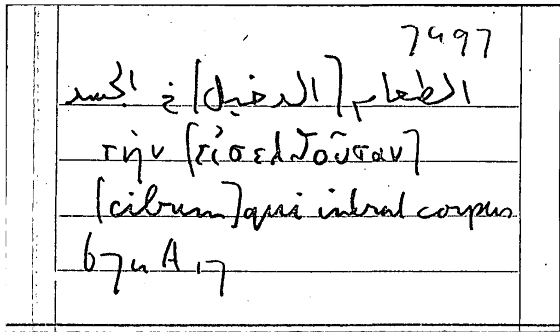 7497
الطعام [الدخيل] في الجسد
τὴν [εἰσελθοῦσαν]
[cibum] qui intrat corpus
67a A 17